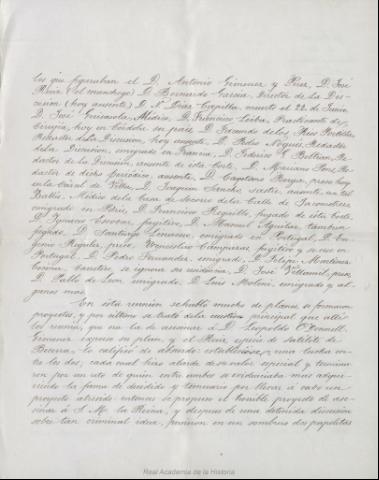 los que figuraban el D. Antonio Gimenez y Perez, D. José
Ruiz (el manchego) D. Bernardo Garcia, Director de La Dis-
cusion (hoy ausente) D. N. Diaz Capilla, muerto el 22 de Junio
D. José Guisasola, Médico, D. Francisco Leiba, Practicante de
Cirugia, hoy en Córdoba su pais, D. Facundo de los Rios Portilla
Redactor de La Discusion, hoy ausente, D. Pedro Nogues, Redactor
de la Discusion, emigrado en Francia, D. Federico C. Beltran, Re-
dactor de la Discusion, ausente de esta Corte, D. Mariano Re-
dactor de dicho periódico, ausente, D. Cayetano preso hoy
en la Cárcel de Villa, D. Joaquin Sancho, sastre, ausente, un tal
Médico de la Casa de Socorro de la Calle de Jacometrezo
emigrado en Paris, D. Francisco fugado de esta Corte,
D. Ignacio Escobar, fugitivo, D. Manuel Aguilar, tambien
fugado, D. Santiago emigrado en Portugal, D. Eu-
genio preso, Wenceslao fugitivo y se cree en
Portugal, D. Pedro Fernandez, emigrado, D. Felipe Martinez
se ignora su residencia, D. José Villamil, preso,
D. Pablo de Leon, emigrado, D. Luis Molini, emigrado y al-
gunos mas.
En esta reunión se habló mucho de planes, se formaron
proyectos, y por último se trató de la cuestion principal que allí
los reunia, que era la de asesinar á D. Leopoldo O'Donnell.
Gimenez expuso su plan, y el Ruiz, especie de satélite de
Becerra, lo calificó de
los dos; cada cual hizo alarde de su valor especial y termina-
ron por un reto de quien entre ambos se
riendo la fama de decidido y temerario por llevar á cabo un
proyecto atrevido: entonces se propuso el horrible proyecto de ase-
sinar á S. M. la Reina, y despues de una detenida discusion
sobre tan criminal idea, pusieron en un sombrero dos papeletas
Real Academia de la Historia